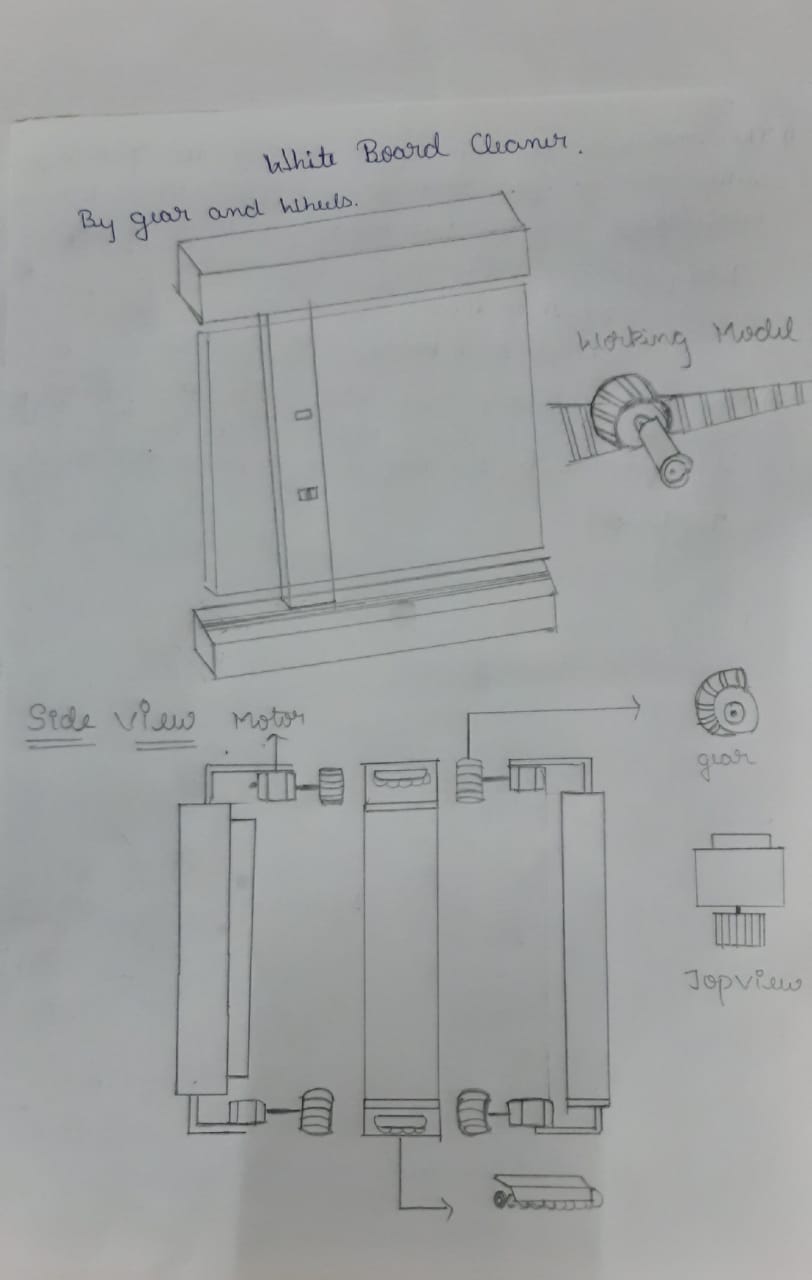 White Board Cleaner.
By gear and Wheels.
Working Model
Side View
Motor
gear
Topview